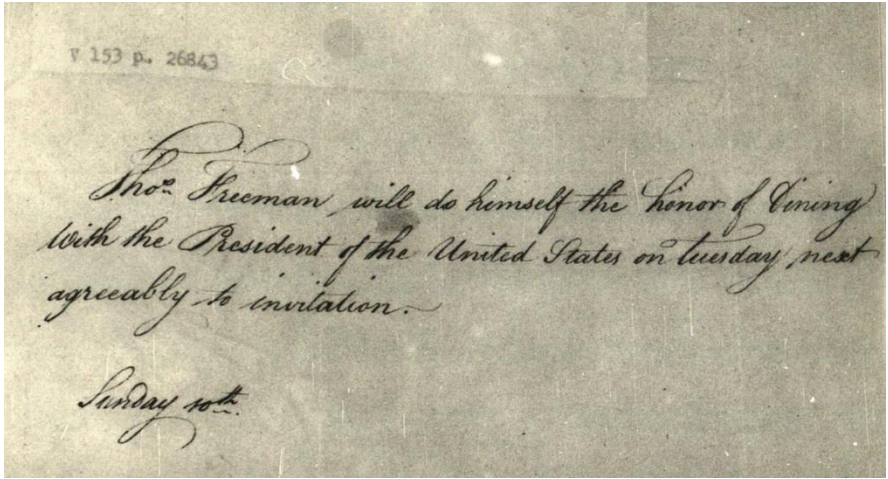 V 153 p. 26843
Thos. Freeman will do himself the honor of Dining
With the President of the United States on tuesday next
agreeably to invitation.
Sunday 10th.